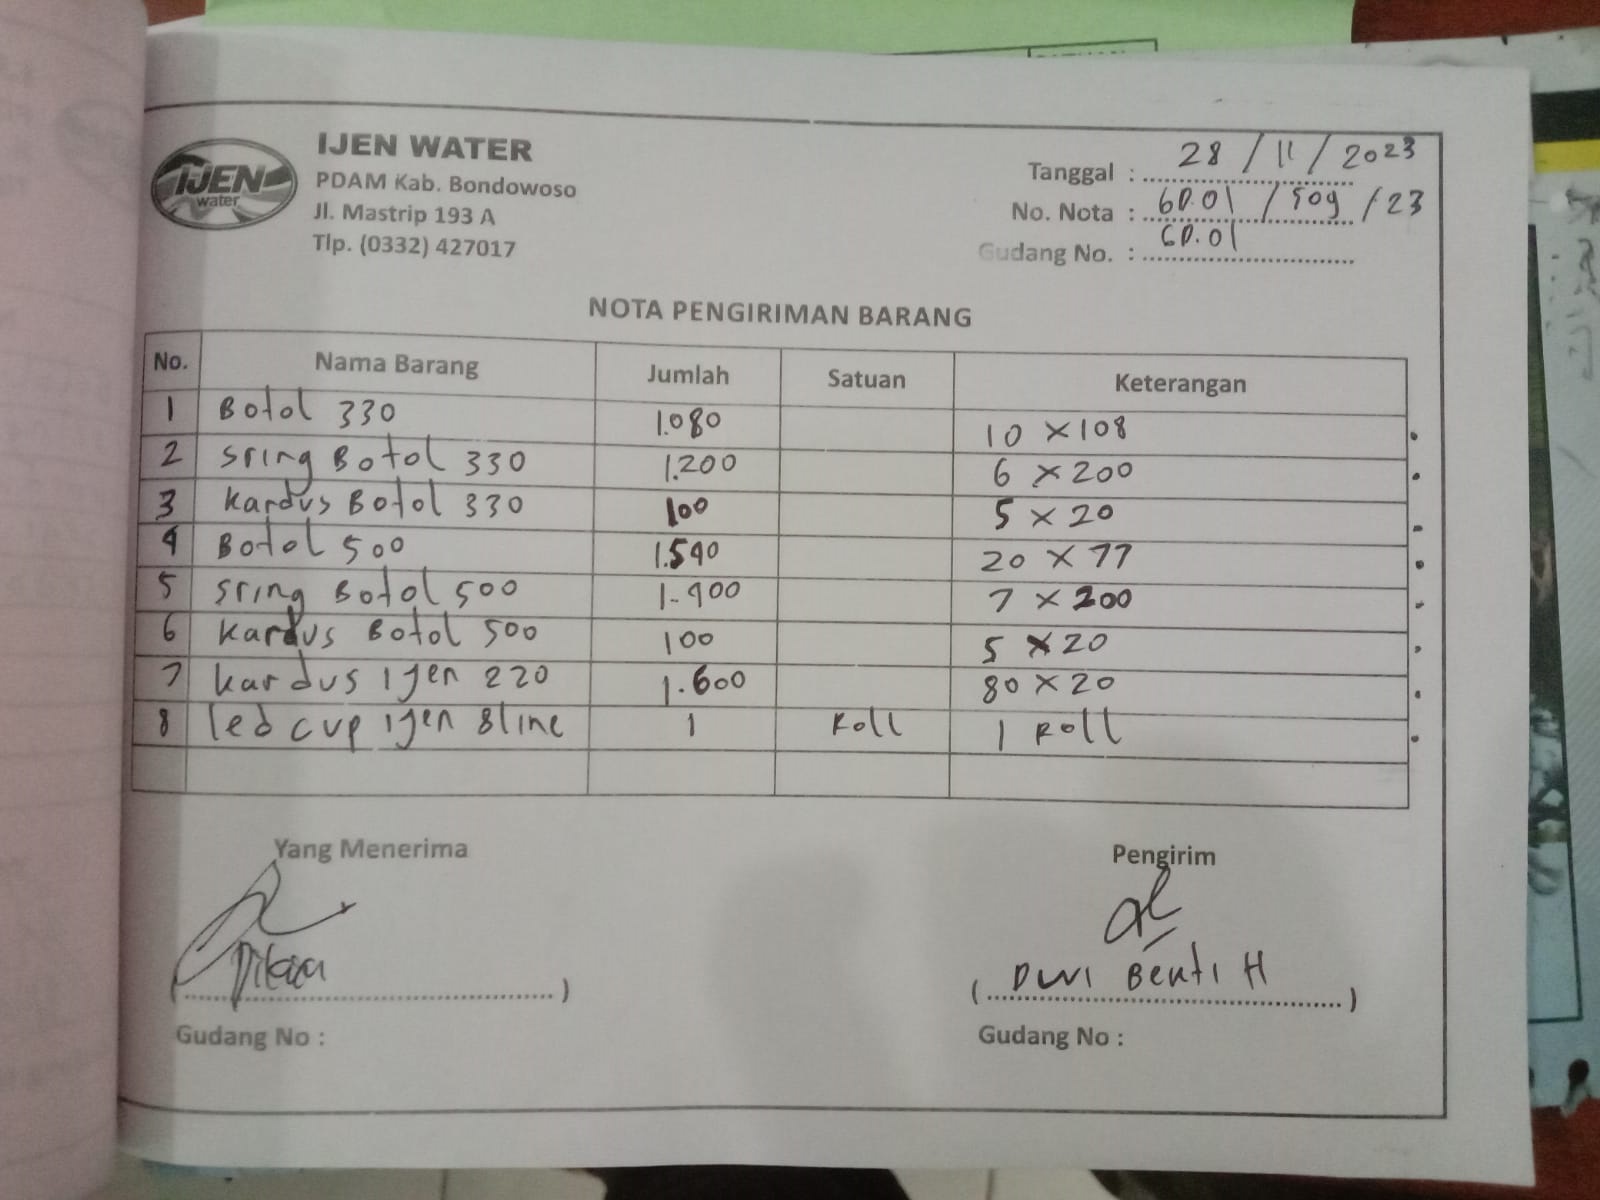 IJEN
water
IJEN WATER
PDAM Kab. Bondowoso
Jl. Mastrip 193 A
Tlp. (0332) 427017
Tanggal : 28 / 11 / 2023
No. Nota : GD.01 / 509 / 23
Gudang No. : GD.01
NOTA PENGIRIMAN BARANG
No. Nama Barang Jumlah Satuan Keterangan
1 Botol 330 1.080 10 x 108
2 sring Botol 330 1.200 6 x 200
3 kardus Botol 330 100 5 x 20
4 Botol 500 1.540 20 x 77
5 sring Botol 500 1.400 7 x 200
6 kardus Botol 500 100 5 x 20
7 kardus ijen 220 1.600 80 x 20
8 led cup ijen 8line 1 Roll 1 Roll
Yang Menerima Pengirim
( ) ( Dwi H )
Gudang No : Gudang No :